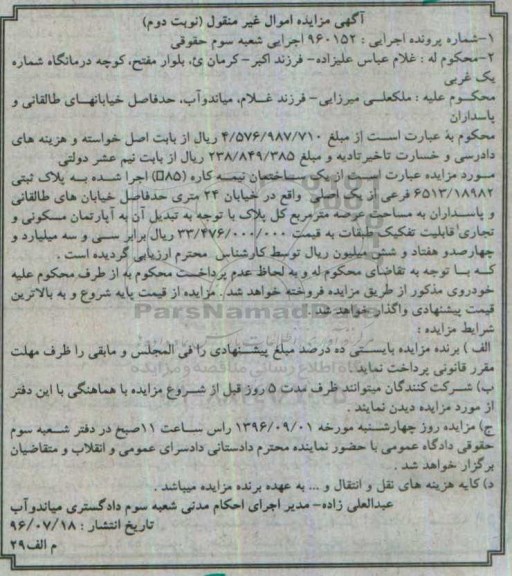 آگهی مزایده اموال غیر منقول (نوبت دوم)
۱-شماره پرونده اجرایی : ۹۶۰۱۵۲ اجرایی شعبه سوم حقوقی
۲-محکوم له : غلام عباس علیزاده- فرزند اکبر- کرمان ئ، بلوار مفتح، کوچه درمانگاه شماره
یک غربی
محکوم علیه : ملکعلی میرزایی- فرزند غلام، میاندوآب، حدفاصل خیابانهای طالقانی و
پاسداران
محکوم به عبارت است از مبلغ ۴/۵۷۶/۹۸۷/۷۱۰ ریال از بابت اصل خواسته و هزینه های
دادرسی و خسارت تاخیر تادیه و مبلغ ۲۳۸/۸۴۹/۳۸۵ ریال از بابت نیم عشر دولتی
مورد مزایده عبارت است از یک ساختمان نیمه کاره (۸۵٪) اجرا شده به پلاک ثبتی
۶۵۱۳/۱۸۹۸۲ فرعی از یک اصلی واقع در خیابان ۲۴ متری حدفاصل خیابان های طالقانی
و پاسداران به مساحت عرصه مترمربع کل پلاک با توجه به تبدیل آن به آپارتمان مسکونی و
تجاری قابلیت تفکیک طبقات به قیمت ۳۳/۴۷۶/۰۰۰/۰۰۰ ریال برابر سی و سه میلیارد و
چهارصدو هفتاد و شش میلیون ریال توسط کارشناس محترم ارزیابی گردیده است .
که با توجه به تقاضای محکوم له و به لحاظ عدم پرداخت محکوم به از طرف محکوم علیه
خودروی مذکور از طریق مزایده فروخته خواهد شد . مزایده از قیمت پایه شروع و به بالاترین
قیمت پیشنهادی واگذار خواهد شد .
شرایط مزایده :
الف ) برنده مزایده بایستی ده درصد مبلغ پیشنهادی را فی المجلس و مابقی را ظرف مهلت
مقرر قانونی پرداخت نماید
ب) شرکت کنندگان میتوانند ظرف مدت ۵ روز قبل از شروع مزایده با هماهنگی با این دفتر
از مورد مزایده دیدن نمایند .
ج) مزایده روز چهارشنبه مورخه ۱۳۹۶/۰۹/۰۱ راس ساعت ۱۱صبح در دفتر شعبه سوم
حقوقی دادگاه عمومی با حضور نماینده محترم دادستانی دادسرای عمومی و انقلاب و متقاضیان
برگزار خواهد شد .
د) کلیه هزینه های نقل و انتقال و ... به عهده برنده مزایده میباشد .
عبدالعلی زاده- مدیر اجرای احکام مدنی شعبه سوم دادگستری میاندوآب
تاریخ انتشار : ۹۶/۰۷/۱۸
م الف۲۹
ParsNamadData